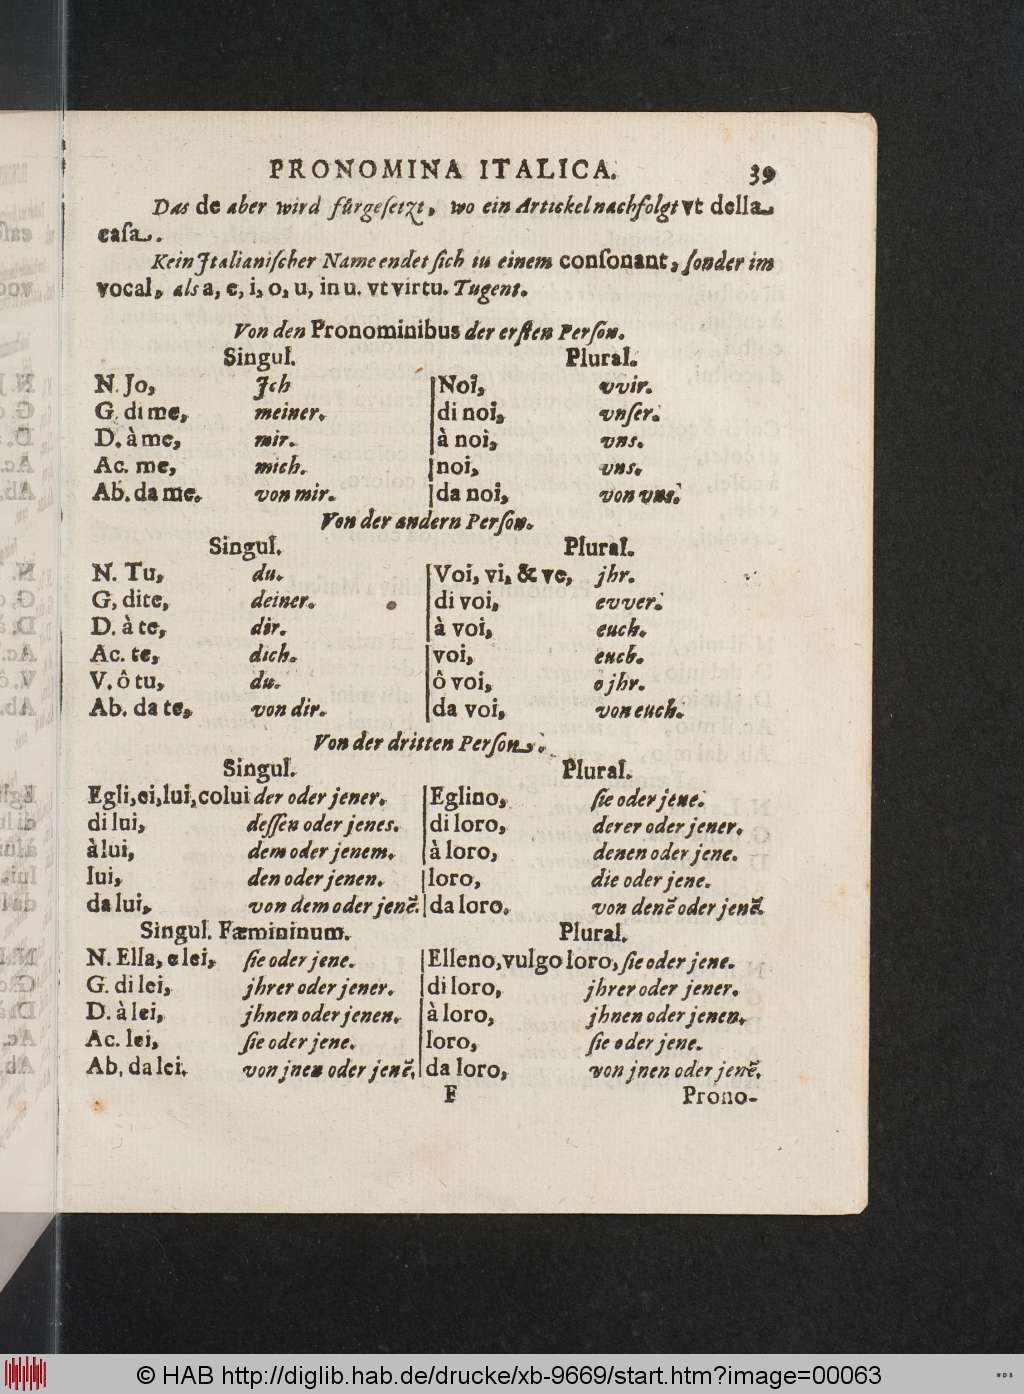 PRONOMINA ITALICA. 39
Das de aber wird fürgeſetzt, wo ein Artickel nachfolgt vt della
caſa.
Kein Jtalianiſcher Name endet ſich in einem conſonant, ſonder im
vocal, als a, e, i, o, u, in u. vt virtu. Tugent.
Von den Pronominibus der erſten Perſon.
Singul. Plural.
N. Jo, Jch Noi, vvir.
G. di me, meiner. di noi, vnſer.
D. à me, mir. à noi, vns.
Ac. me, mich. noi, vns.
Ab. da me. von mir. da noi, von vns.
Von der andern Perſon.
Singul. Plural.
N. Tu, du. Voi, vi, & ve, jhr.
G, di te, deiner. di voi, evver.
D. à te, dir. à voi, euch.
Ac. te, dich. voi, euch.
V. ô tu, du. ô voi, o jhr.
Ab. da te, von dir. da voi, von euch.
Von der dritten Perſon.
Singul. Plural.
Egli, ei, lui, colui der oder jener. Eglino, ſie oder jene.
di lui, deſſen oder jenes. di loro, derer oder jener.
à lui, dem oder jenem. à loro, denen oder jene.
lui, den oder jenen. loro, die oder jene.
da lui, von dem oder jenē. da loro. von denē oder jenē.
Singul. Fæmininum. Plural.
N. Ella, e lei, ſie oder jene. Elleno, vulgo loro, ſie oder jene.
G. di lei, jhrer oder jener. di loro, jhrer oder jener.
D. à lei, jhnen oder jenen. à loro, jhnen oder jenen.
Ac. lei, ſie oder jene. loro, ſie oder jene.
Ab. da lei. von jnen oder jenē. da loro, von jnen oder jenē.
F Prono-
© HAB http://diglib.hab.de/drucke/xb-9669/start.htm?image=00063